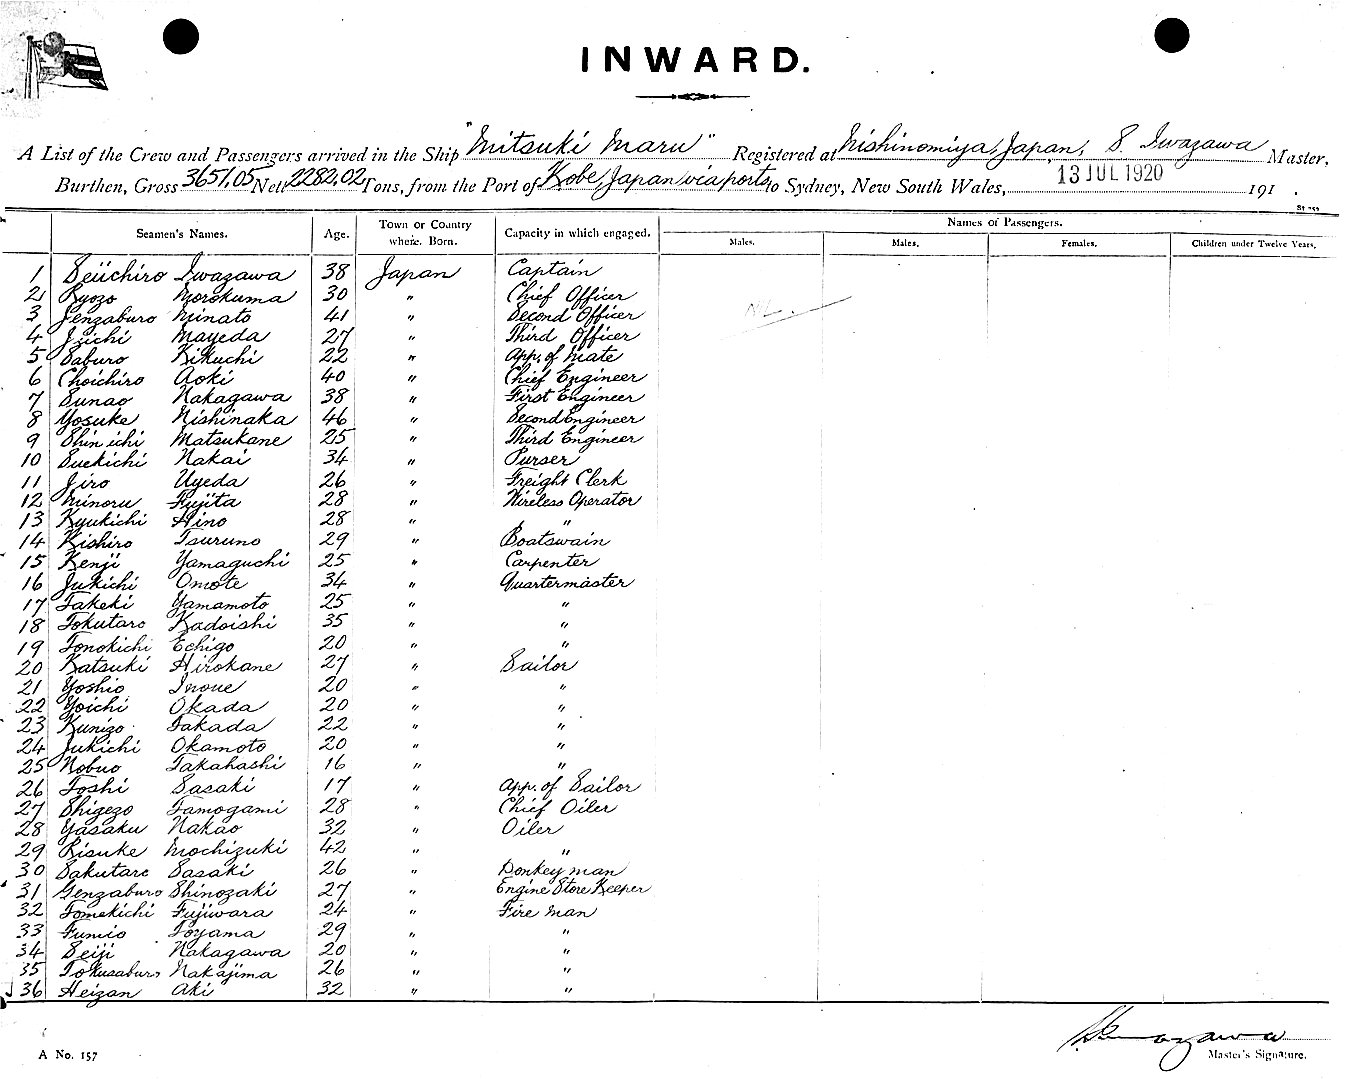 INWARD.
A List of the Crew and Passengers arrived in the Ship "Mitsuki Maru" Registered at Nishinomiya, Japan, S. Iwazawa Master,
Burthen, Gross 3651.05 Nett 2282.02 Tons, from the Port of Kobe, Japan via ports to Sydney, New South Wales, 13 JUL 1920 191 .
Seamen's Names. Age. Town or Country where Born. Capacity in which engaged. Names of Passengers.
Males. Males. Females. Children under Twelve Years.
1 Seiichiro Iwazawa 38 Japan Captain
2 Ryozo Morokuma 30 " Chief Officer
NIL.
3 Jenzaburo Minato 41 " Second Officer
4 Juichi Mayeda 27 " Third Officer
5 Saburo Kikuchi 22 " App. of Mate
6 Choichiro Aoki 40 " Chief Engineer
7 Sunao Nakagawa 38 " First Engineer
8 Yosuke Nishinaka 46 " Second Engineer
9 Shin ichi Matsukane 25 " Third Engineer
10 Suekichi Nakai 34 " Purser
11 Jiro Uyeda 26 " Freight Clerk
12 Minoru Fujita 28 " Wireless Operator
13 Kyukichi Hino 28 " "
14 Kishiro Tsuruno 29 " Boatswain
15 Kenji Yamaguchi 25 " Carpenter
16 Jukichi Omote 34 " Quartermaster
17 Takeki Yamamoto 25 " "
18 Tokutaro Kadoishi 35 " "
19 Tonokichi Echigo 20 " "
20 Katsuki Hirokane 27 " Sailor
21 Yoshio Inoue 20 " "
22 Yoichi Okada 20 " "
23 Kunizo Takada 22 " "
24 Jukichi Okamoto 20 " "
25 Nobuo Takahashi 16 " "
26 Toshi Sasaki 17 " App. of Sailor
27 Shigezo Tamogami 28 " Chief Oiler
28 Yasaku Nakao 32 " Oiler
29 Risuke Mochizuki 42 " "
30 Sakutaro Sasaki 26 " Donkey man
31 Genzaburo Shinozaki 27 " Engine Store Keeper
32 Tomekichi Fujiwara 24 " Fire man
33 Fumio Toyama 29 " "
34 Seiji Nakagawa 20 " "
35 Tokusaburo Nakajima 26 " "
36 Heizan Aki 32 " "
A No. 157
Master's Signature.